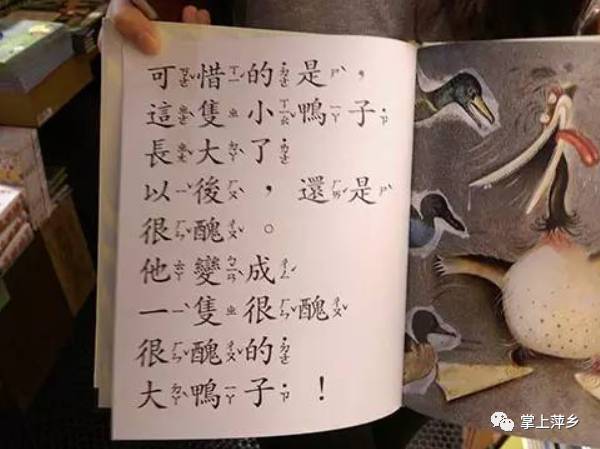 可惜的是，
這隻小鴨子
長大了
以後，還是
很醜。
他變成
一隻很醜
很醜的
大鴨子！
掌上萍乡